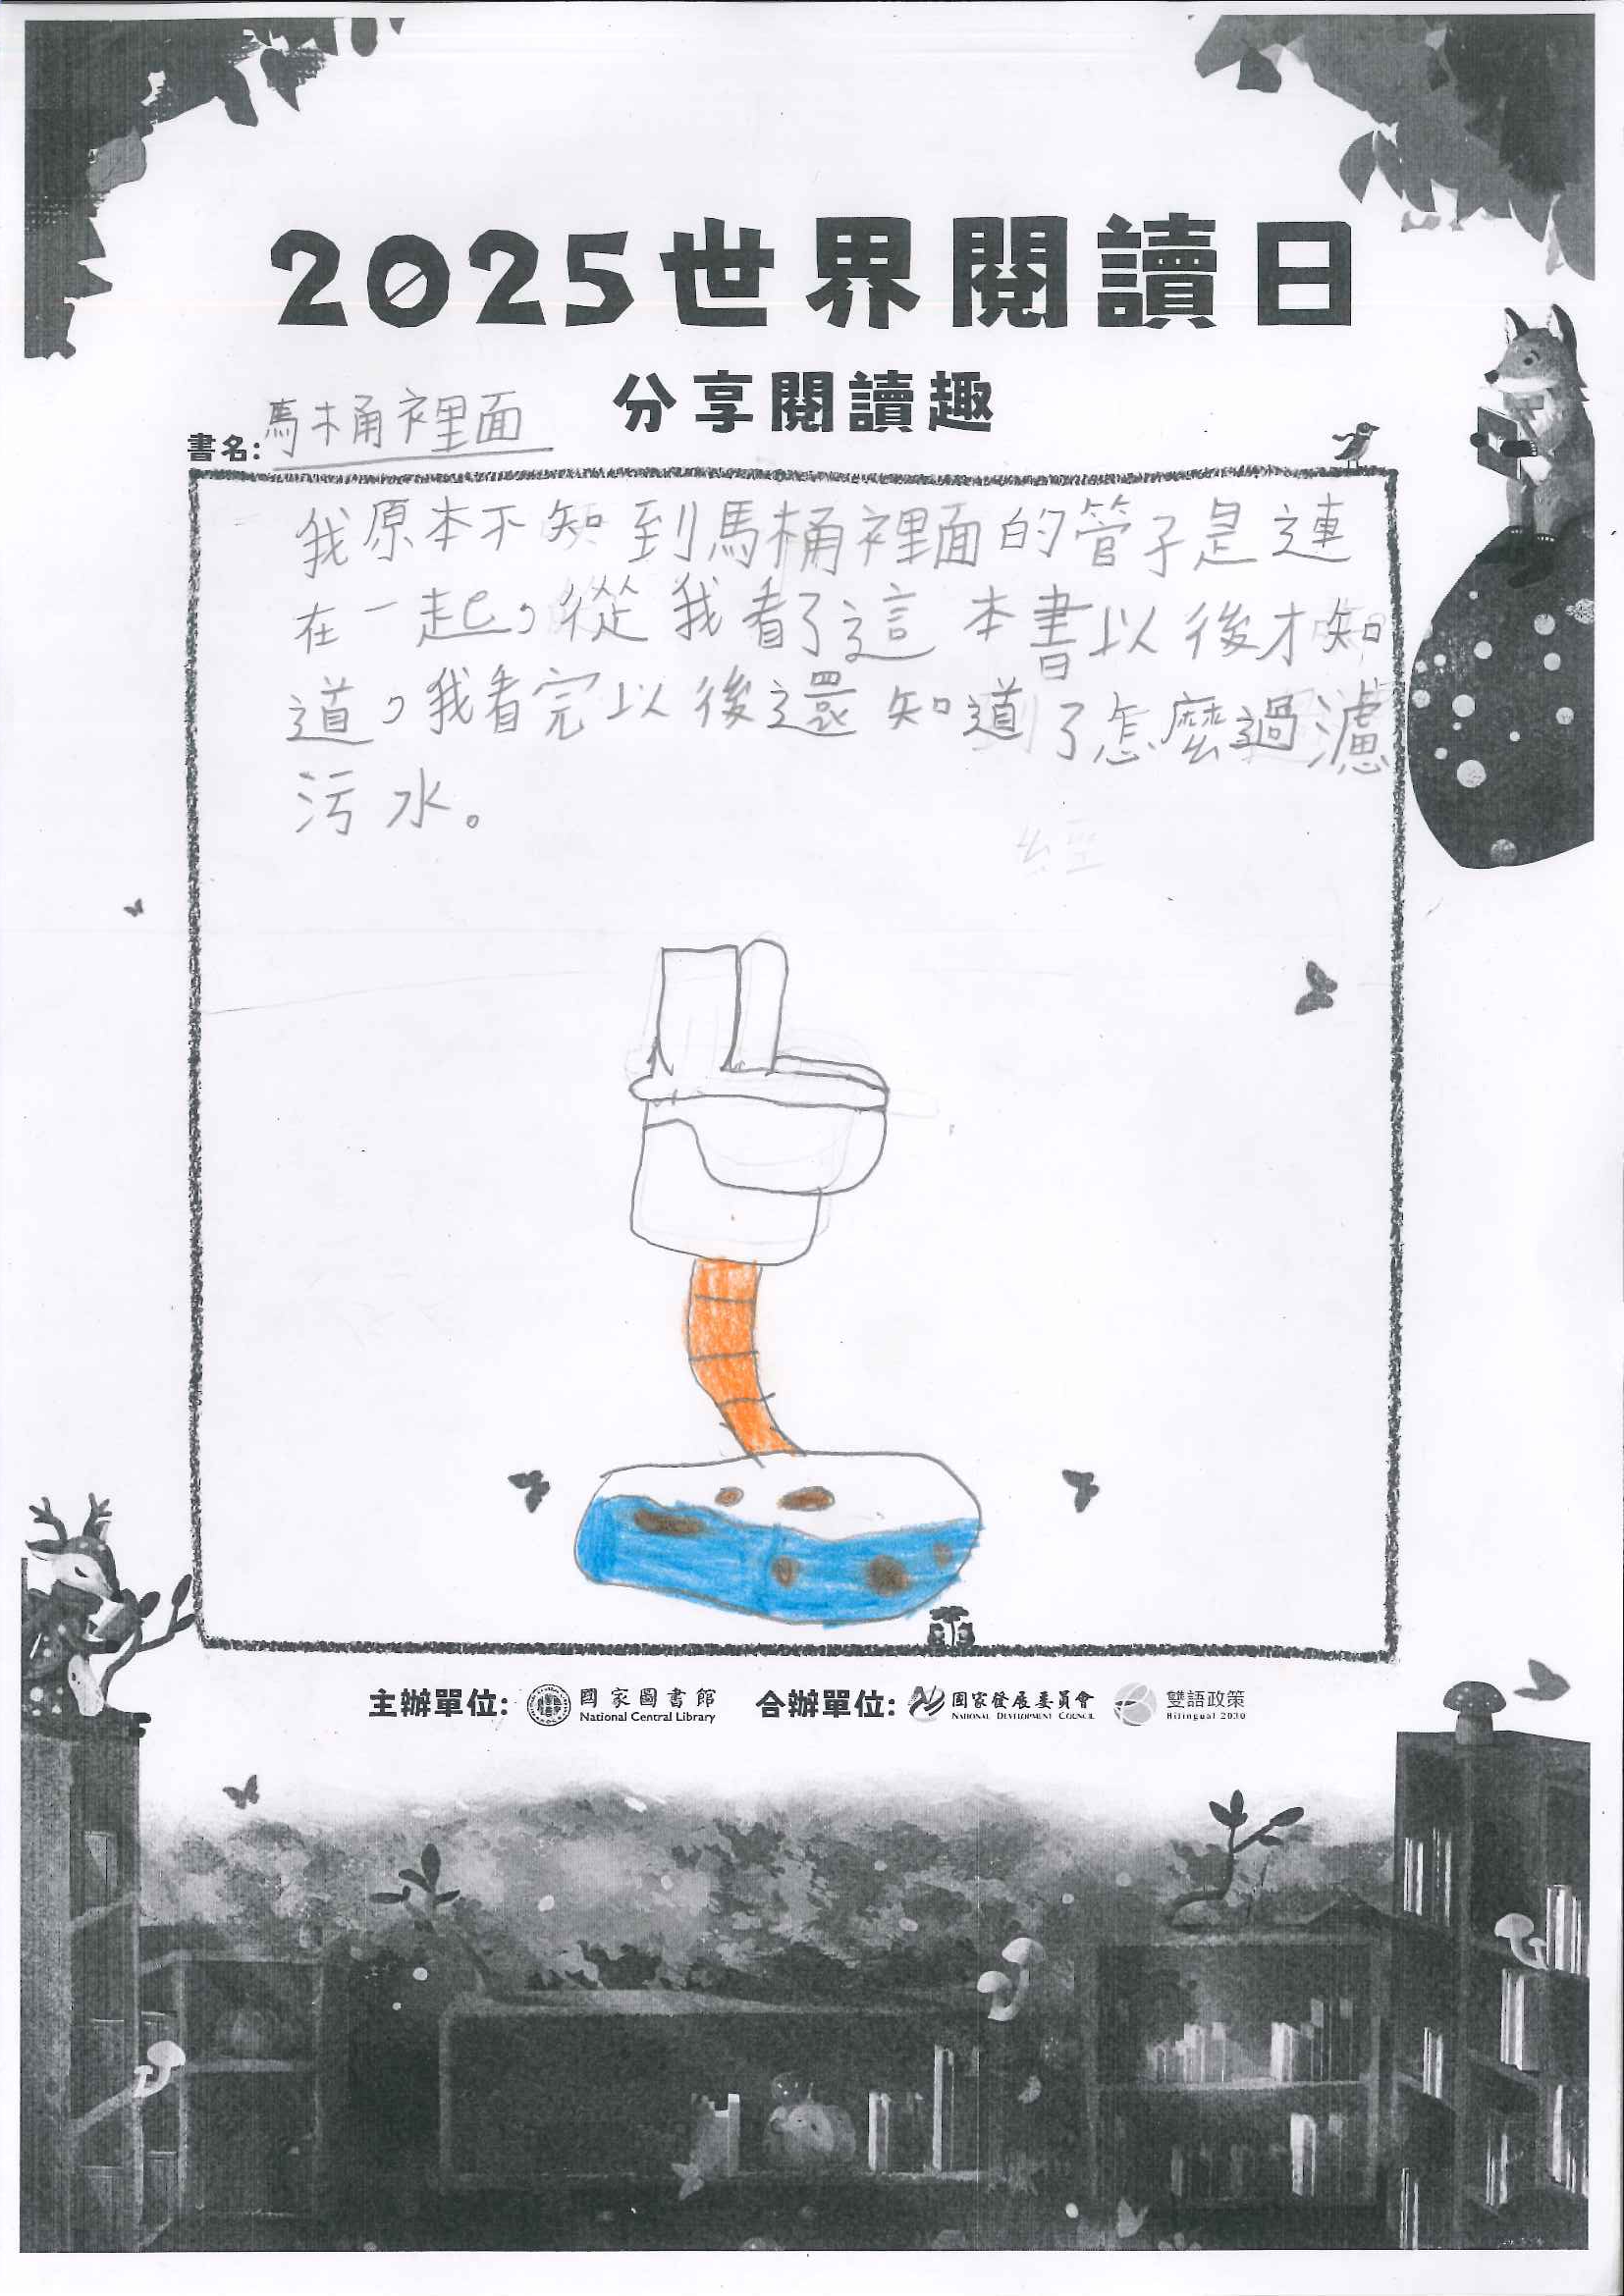 2025世界閱讀日
分享閱讀趣
書名:馬桶裡面
我原本不知到馬桶裡面的管子是連
在一起,從我看了這本書以後才知
道,我看完以後還知道了怎麼過濾
污水。
主辦單位: 國家圖書館 National Central Library 合辦單位: 國家發展委員會 National Development Council 雙語政策 Bilingual 2030